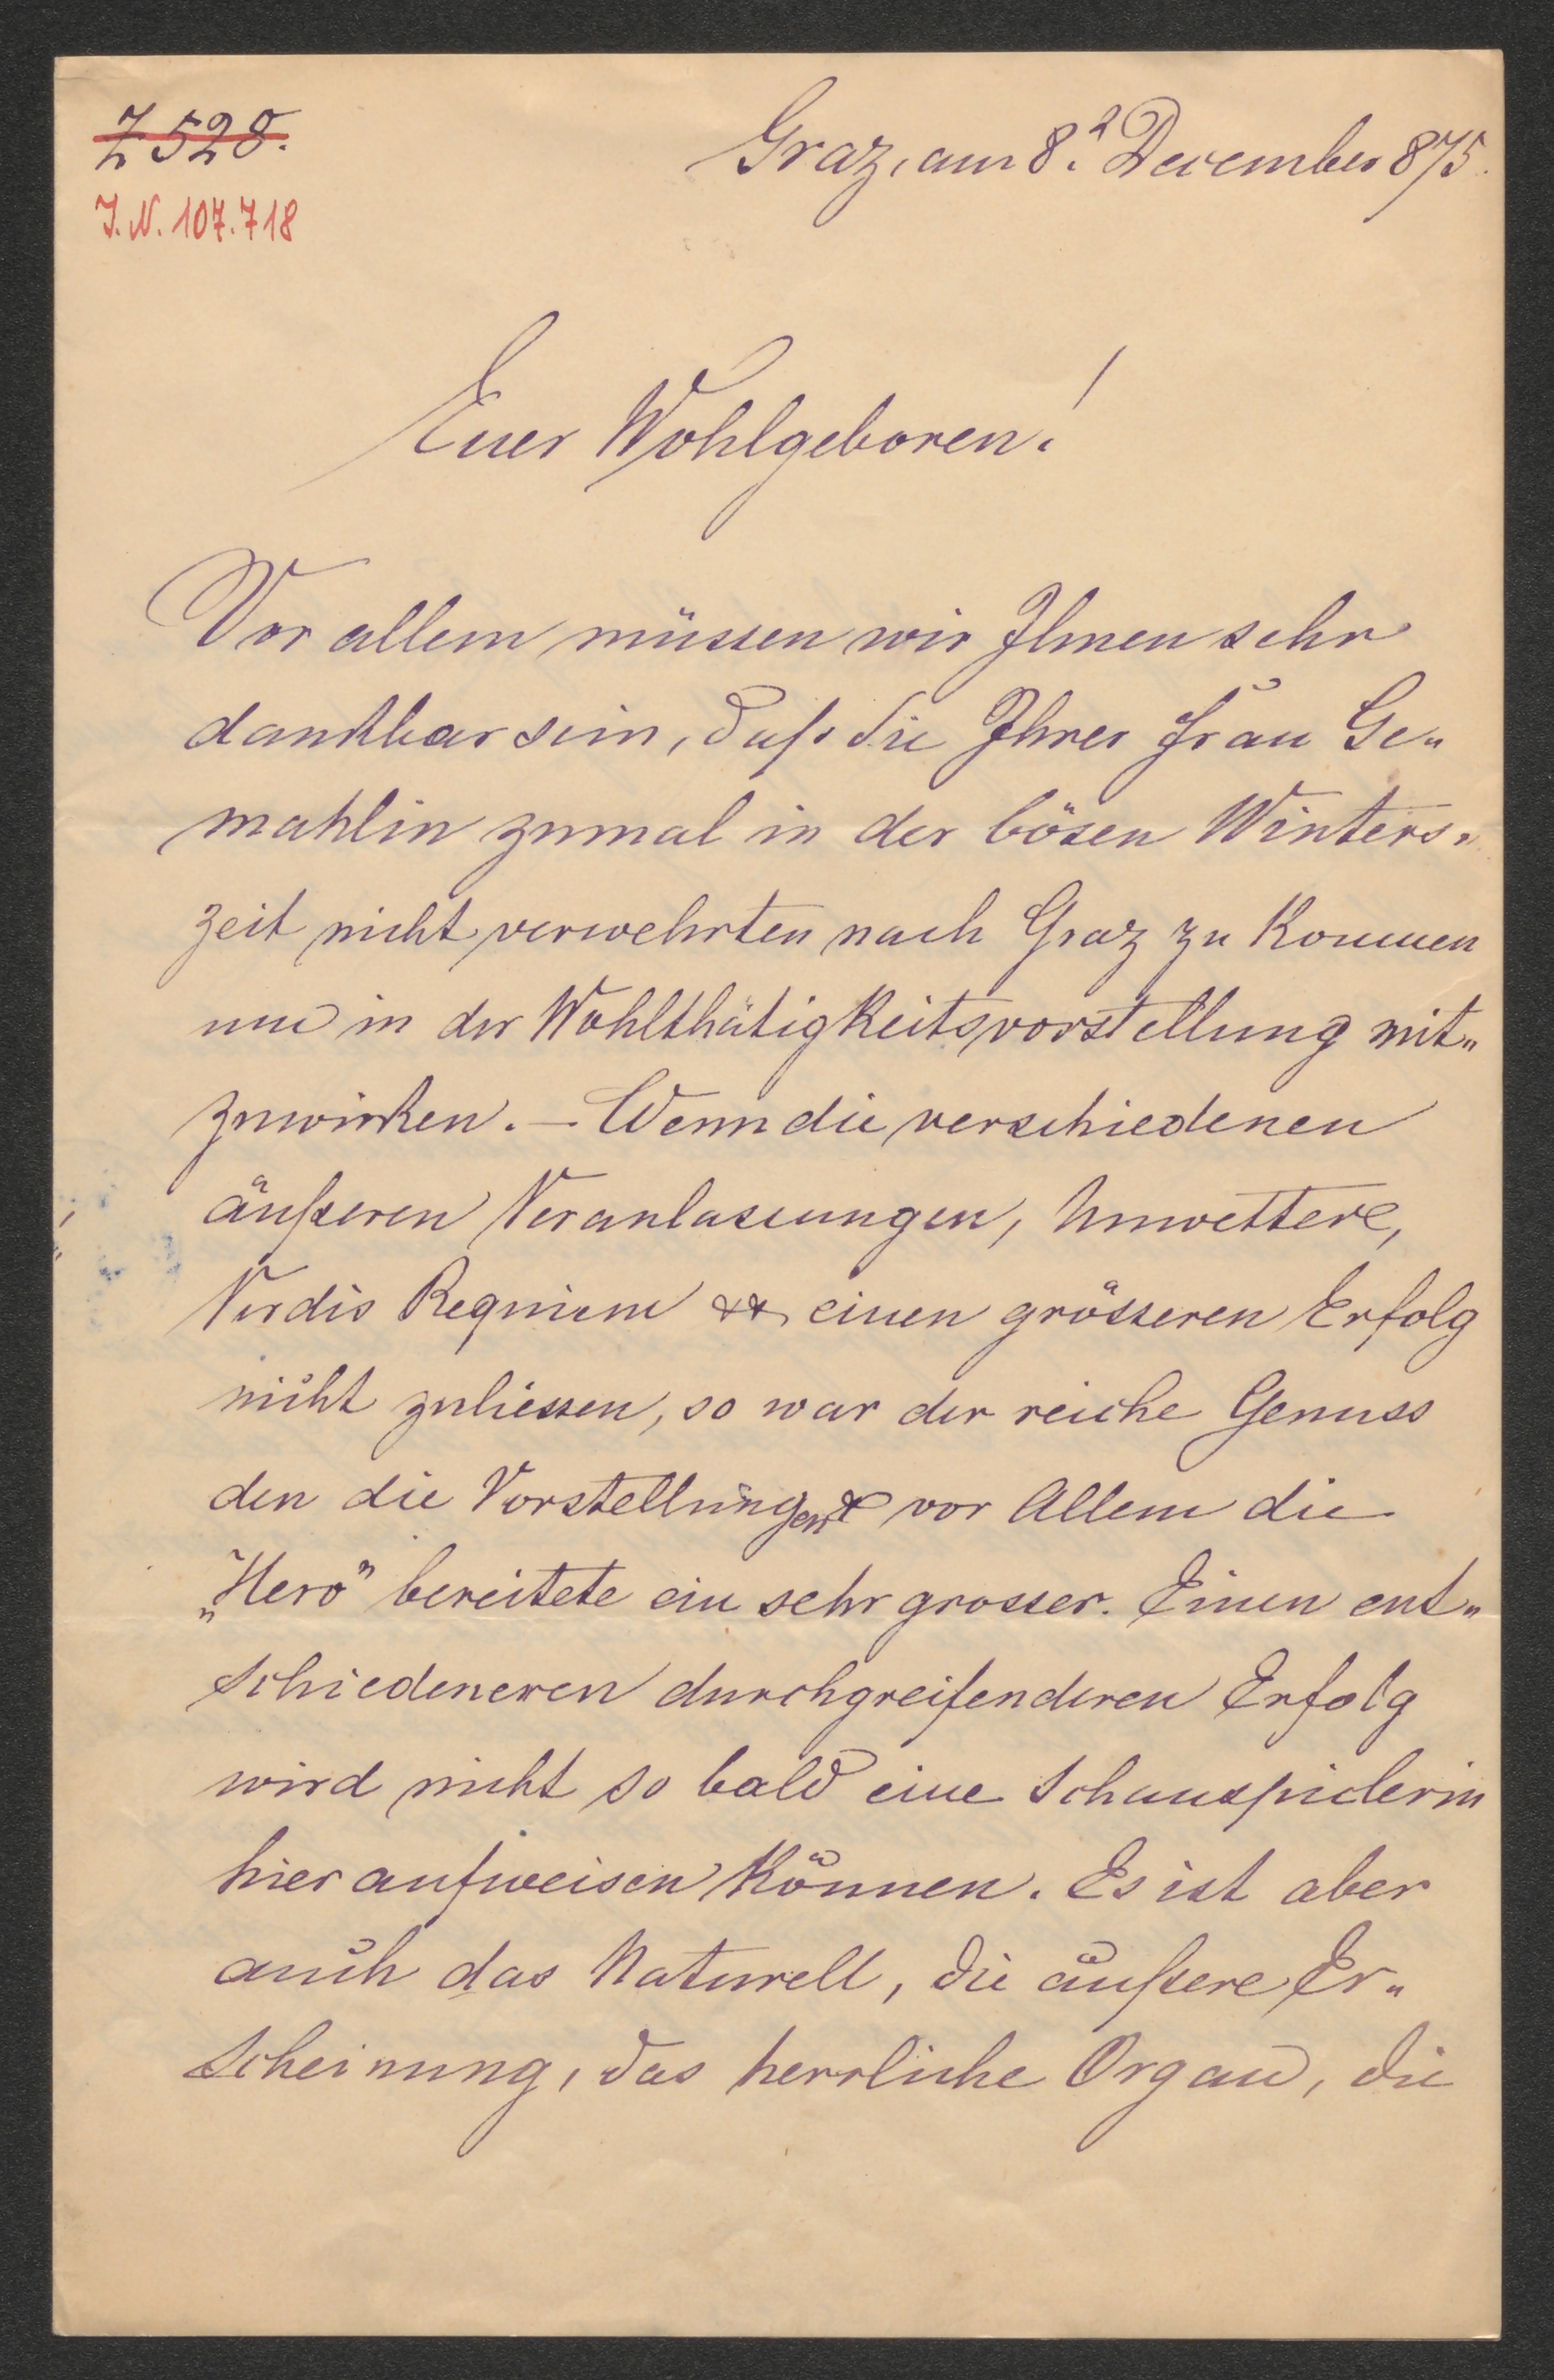 Z 528.
Graz, am 8. December 875.
J. N. 107.718
Euer Wohlgeboren!
Vor allem müssen wir Ihnen sehr
dankbar sein, daß Sie Ihrer Frau Ge„
mahlin zumal in der bösen Winters„
zeit nicht verwehrten nach Graz zu kommen
um in der Wohlthätigkeitsvorstellung mit„
zuwirken. – Wenn die verschiedenen
äußeren Veranlassungen, Unwetter etc,
Verdis Requiem etc einen grösseren Erfolg
nicht zuliessen, so war der reiche Genuss
den die Vorstellungen & vor Allem die
„Hero" bereitete ein sehr grosser. Einen ent„
schiedeneren durchgreifenderen Erfolg
wird nicht so bald eine Schauspielerin
hier aufweisen können. Es ist aber
auch das Naturell, die äußere Er„
scheinung, das herrliche Organ, die